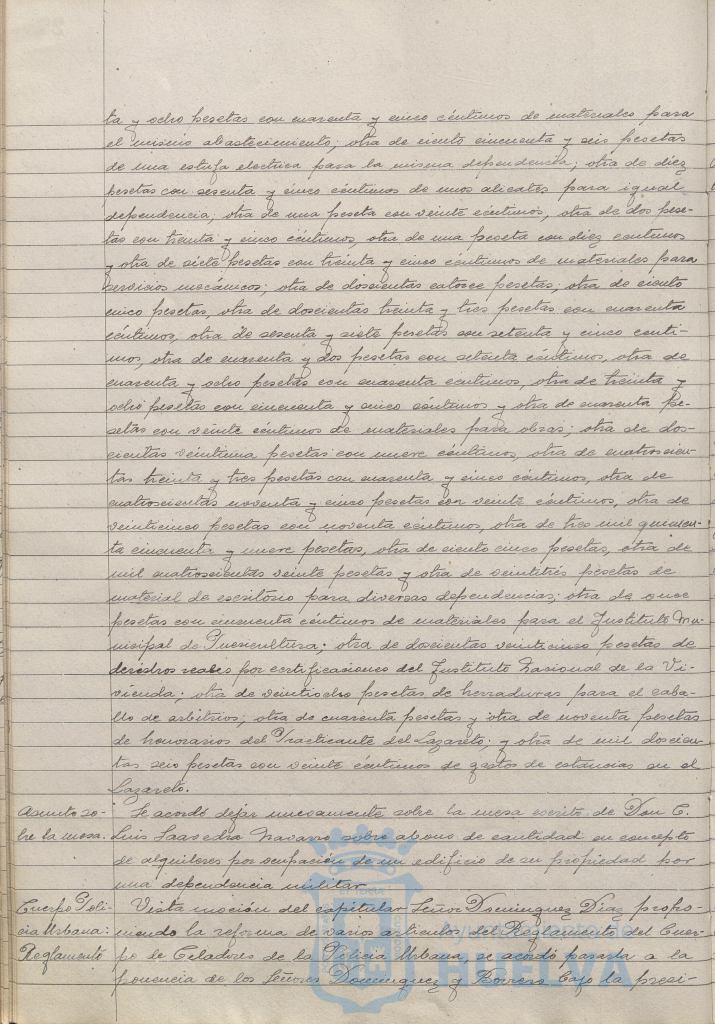 ta y ocho pesetas con cuarenta y cinco céntimos de materiales para
el mismo abastecimiento; otra de ciento cincuenta y seis pesetas
de una estufa electrica para la misma dependencia; otra de diez
pesetas con sesenta y cinco céntimos de unos alicates para igual
dependencia; otra de una peseta con veinte céntimos, otra de dos pese-
tas con treinta y cinco céntimos, otra de una peseta con diez centimos
y otra de siete pesetas con treinta y cinco céntimos de materiales para
servicios mecánicos; otra de doscientas catorce pesetas; otra de ciento
cinco pesetas, otra de doscientas treinta y tres pesetas con cuarenta
céntimos, otra de sesenta y siete pesetas con setenta y cinco centi-
mos, otra de cuarenta y dos pesetas con setenta céntimos, otra de
cuarenta y ocho pesetas con cuarenta centimos, otra de treinta y
ocho pesetas con cincuenta y cinco céntimos y otra de cuarenta pe-
setas con veinte céntimos de materiales para obras; otra de dos-
cientas veintiuna pesetas con nueve céntimos, otra de cuatrocien-
tas treinta y tres pesetas con cuarenta y cinco céntimos, otra de
cuatrocientas noventa y cinco pesetas con veinte céntimos, otra de
veinticinco pesetas con noventa centimos, otra de tres mil quinien-
ta cincuenta y nueve pesetas, otra de ciento cinco pesetas, otra de
mil cuatrocientas veinte pesetas y otra de veintitrés pesetas de
material de escritorio para diversas dependencias; otra de once
pesetas con cincuenta céntimos de materiales para el Instituto Mu-
nicipal de Puericultura; otra de doscientas veinticinco pesetas de
derechos reales por certificaciones del Instituto Nacional de la Vi-
vienda; otra de veintiocho pesetas de herraduras para el caba-
llo de arbitrios; otra de cuarenta pesetas y otra de noventa pesetas
de honorarios del Practicante del Lazareto; y otra de mil doscien-
tas seis pesetas con veinte céntimos de gastos de estancias en el
Lazareto.
Asunto so-
bre la mesa.
Se acordó dejar nuevamente sobre la mesa escrito de Don C.
Luis Saavedra Navarro sobre abono de cantidad en concepto
de alquileres por ocupación de un edificio de su propiedad por
una dependencia militar.
Cuerpo Poli-
cia Urbana:
Reglamento
Vista moción del capitular Señor Dominguez Diaz propo-
niendo la reforma de varios articulos del Reglamento del Cuer-
po de Celadores de la Policia Urbana se acordó pasarla a la
ponencia de los Señores Dominguez y Borrero bajo la presi-
HUELVA